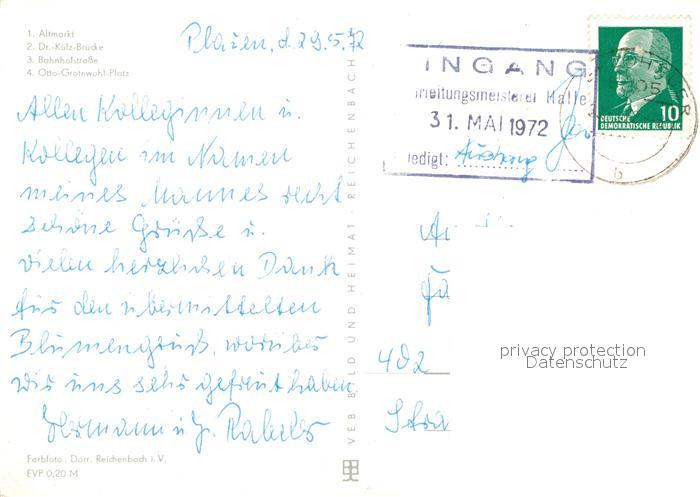 1. Altmarkt
2. Dr.-Külz-Brücke
3. Bahnhofstraße
4. Otto-Grotewohl-Platz
Plauen, d. 29.5.72
Allen Kolleginnen u.
Kollegen im Namen
meines Mannes recht
schöne Grüße u.
vielen herzlichen Dank
für den übermittelten
Blumengruß, worüber
wir uns sehr gefreut haben.
Hermann u.
Farbfoto: Darr, Reichenbach i. V.
EVP 0,20 M
VEB BILD UND HEIMAT · REICHENBACH
INGANG
meitungsmeisterei Halle
31. MAI 1972
edigt: Aushang
DEUTSCHE
DEMOKRATISCHE REPUBLIK
10
b
402
Stra
privacy protection
Datenschutz